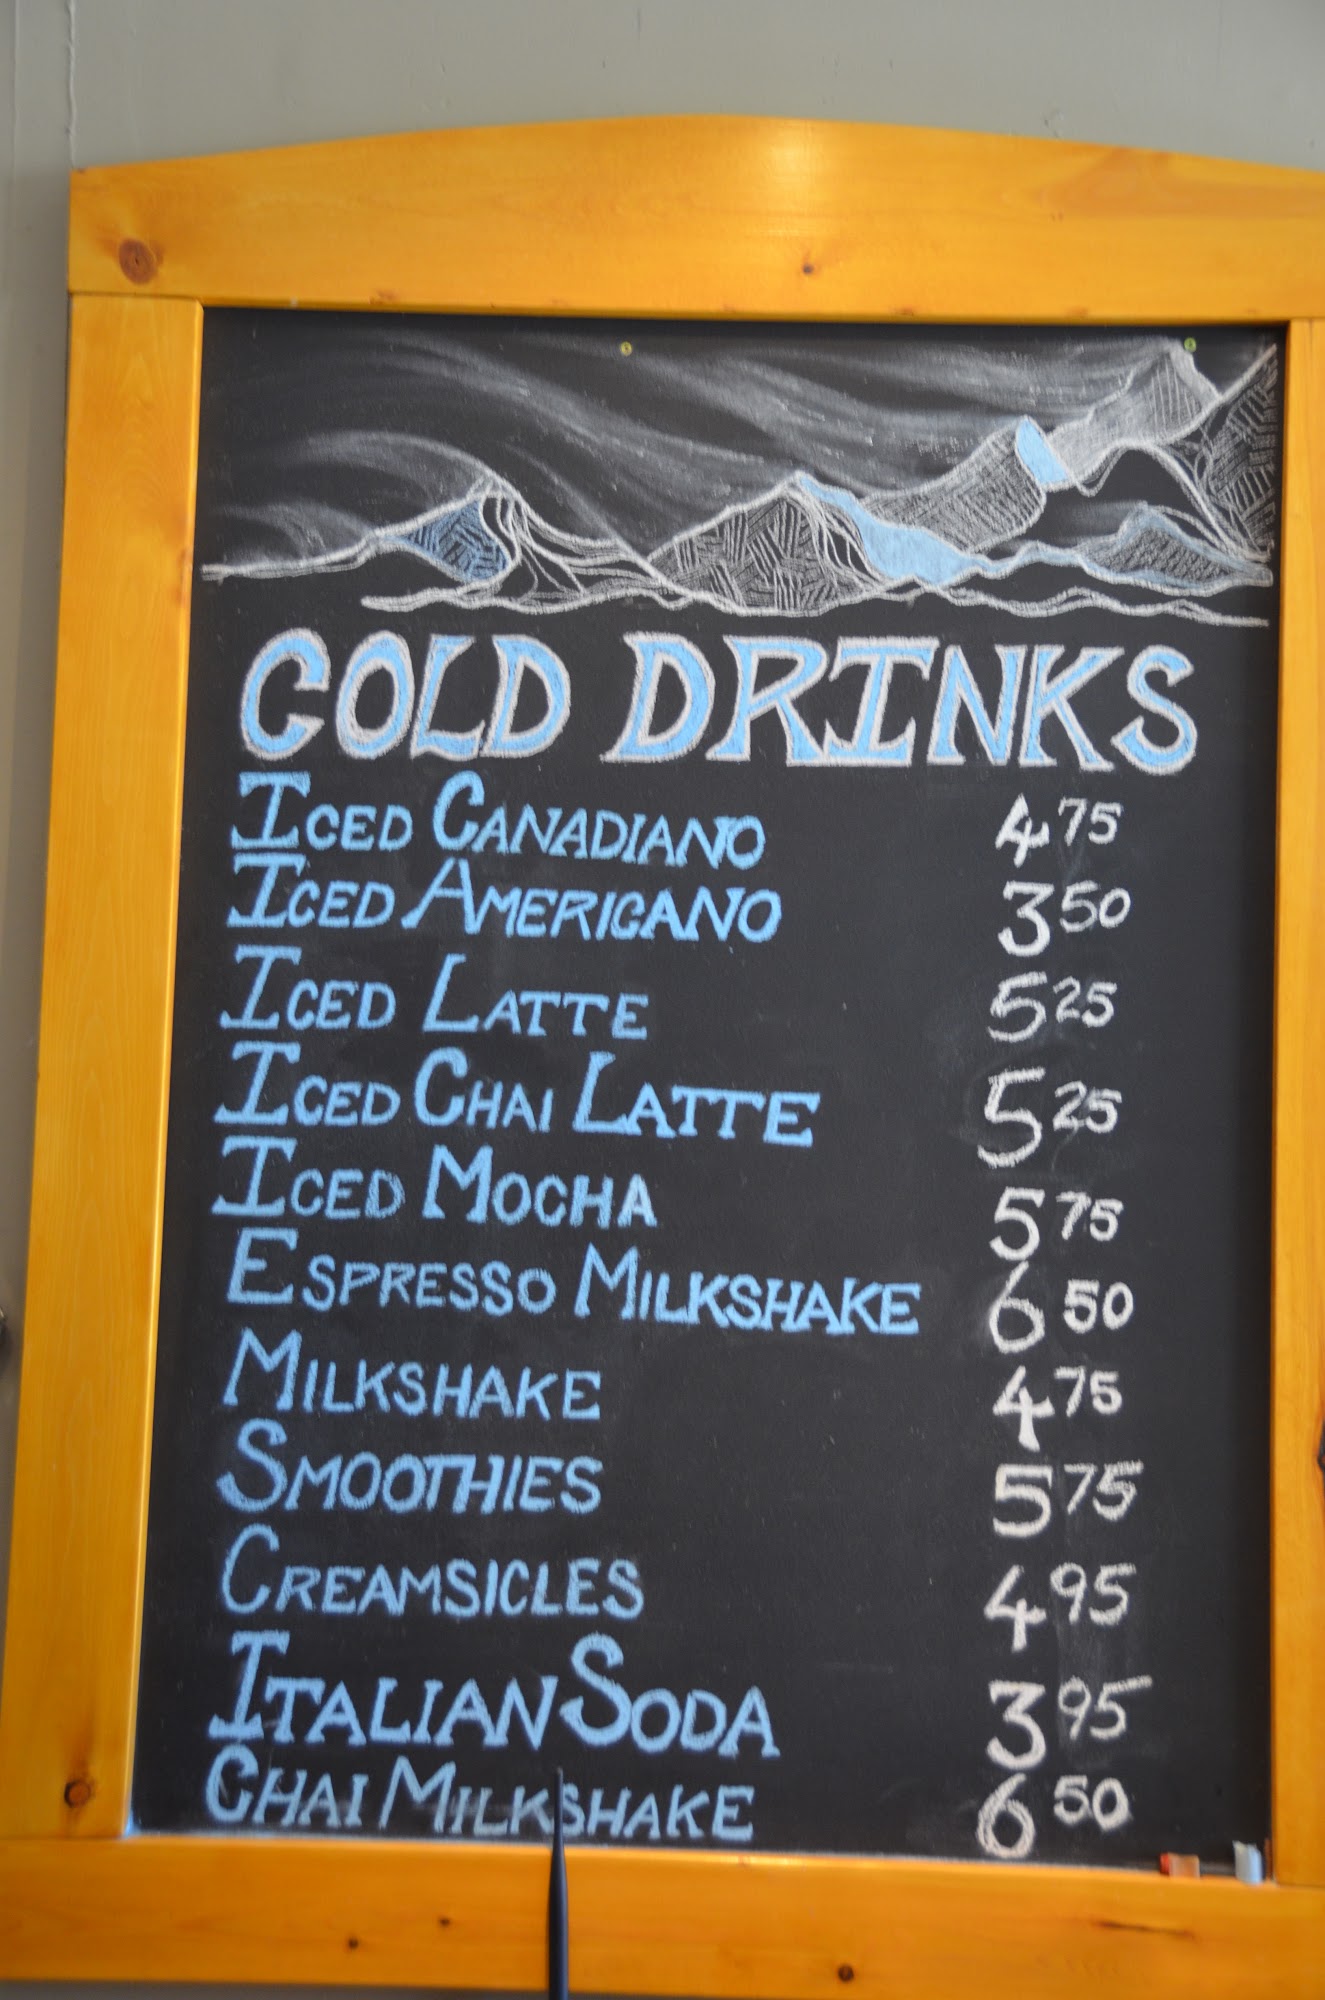 COLD DRINKS
ICED CANADIANO 4 75
ICED AMERICANO 3 50
ICED LATTE 5 25
ICED CHAI LATTE 5 25
ICED MOCHA 5 75
ESPRESSO MILKSHAKE 6 50
MILKSHAKE 4 75
SMOOTHIES 5 75
CREAMSICLES 4 95
ITALIAN SODA 3 95
CHAI MILKSHAKE 6 50